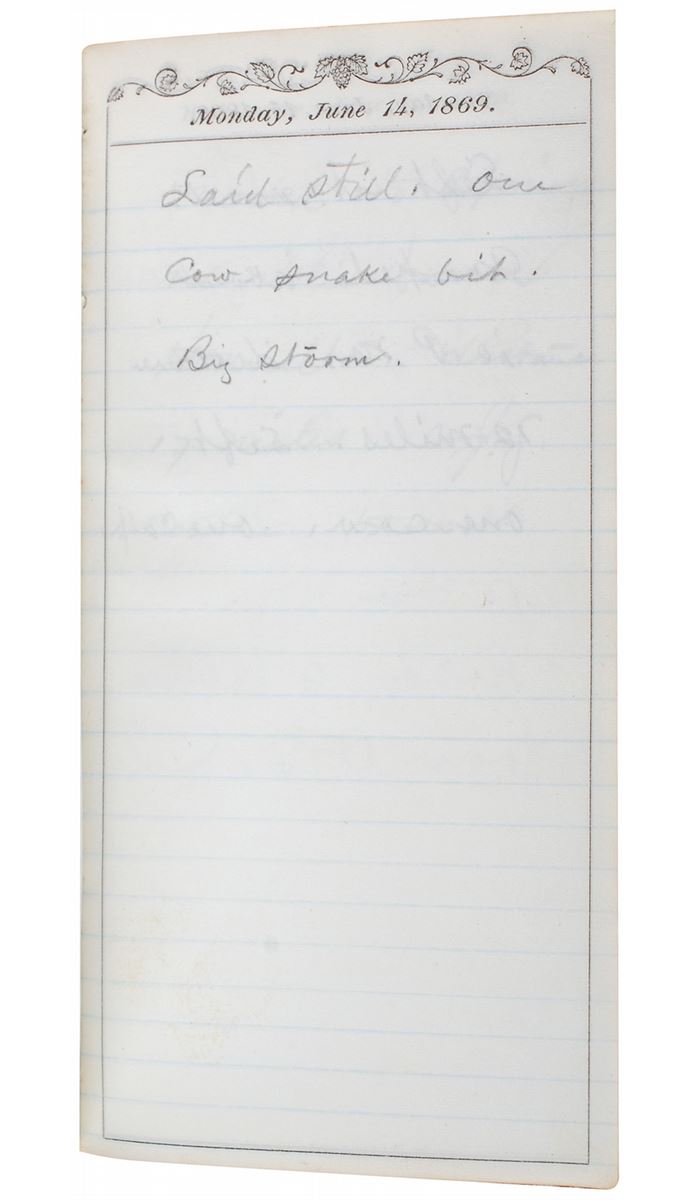 Monday, June 14, 1869.
Laid still. One
Cow snake bit.
Big storm.